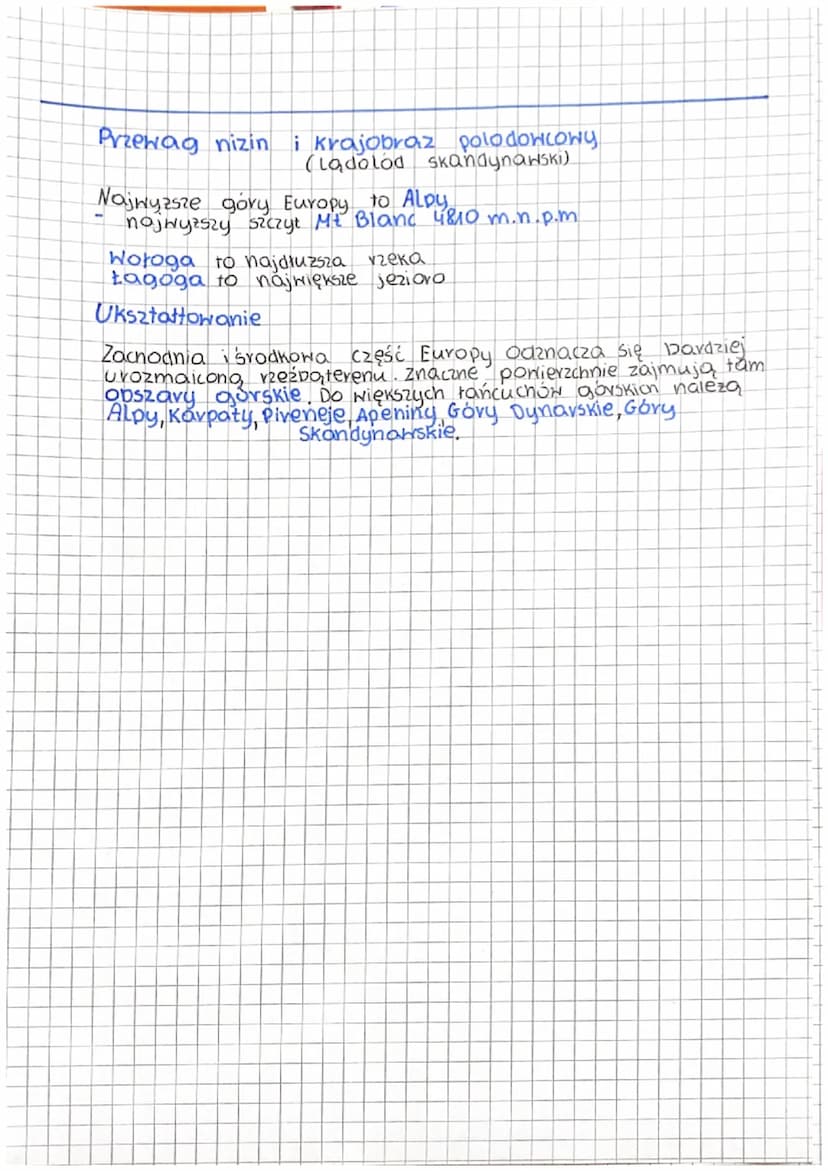 Przewag nizin i krajobraz polodowcowy
(lądolód skandynawski)
Najwyższe góry Europy to Alpy
- najwyższy szczyt Mt Blanc 4810 m.n.p.m
Wołoga to najdłuższa rzeka
Łagoga to największe jezioro
Ukształtowanie
Zachodnia i środkowa część Europy odznacza się bardziej
urozmaiconą rzeźbą terenu. Znaczne powierzchnie zajmują tam
obszary górskie. Do większych łańcuchów górskich należą
Alpy, Karpaty, Pireneje, Apeniny, Góry Dynarskie, Góry
Skandynawskie.